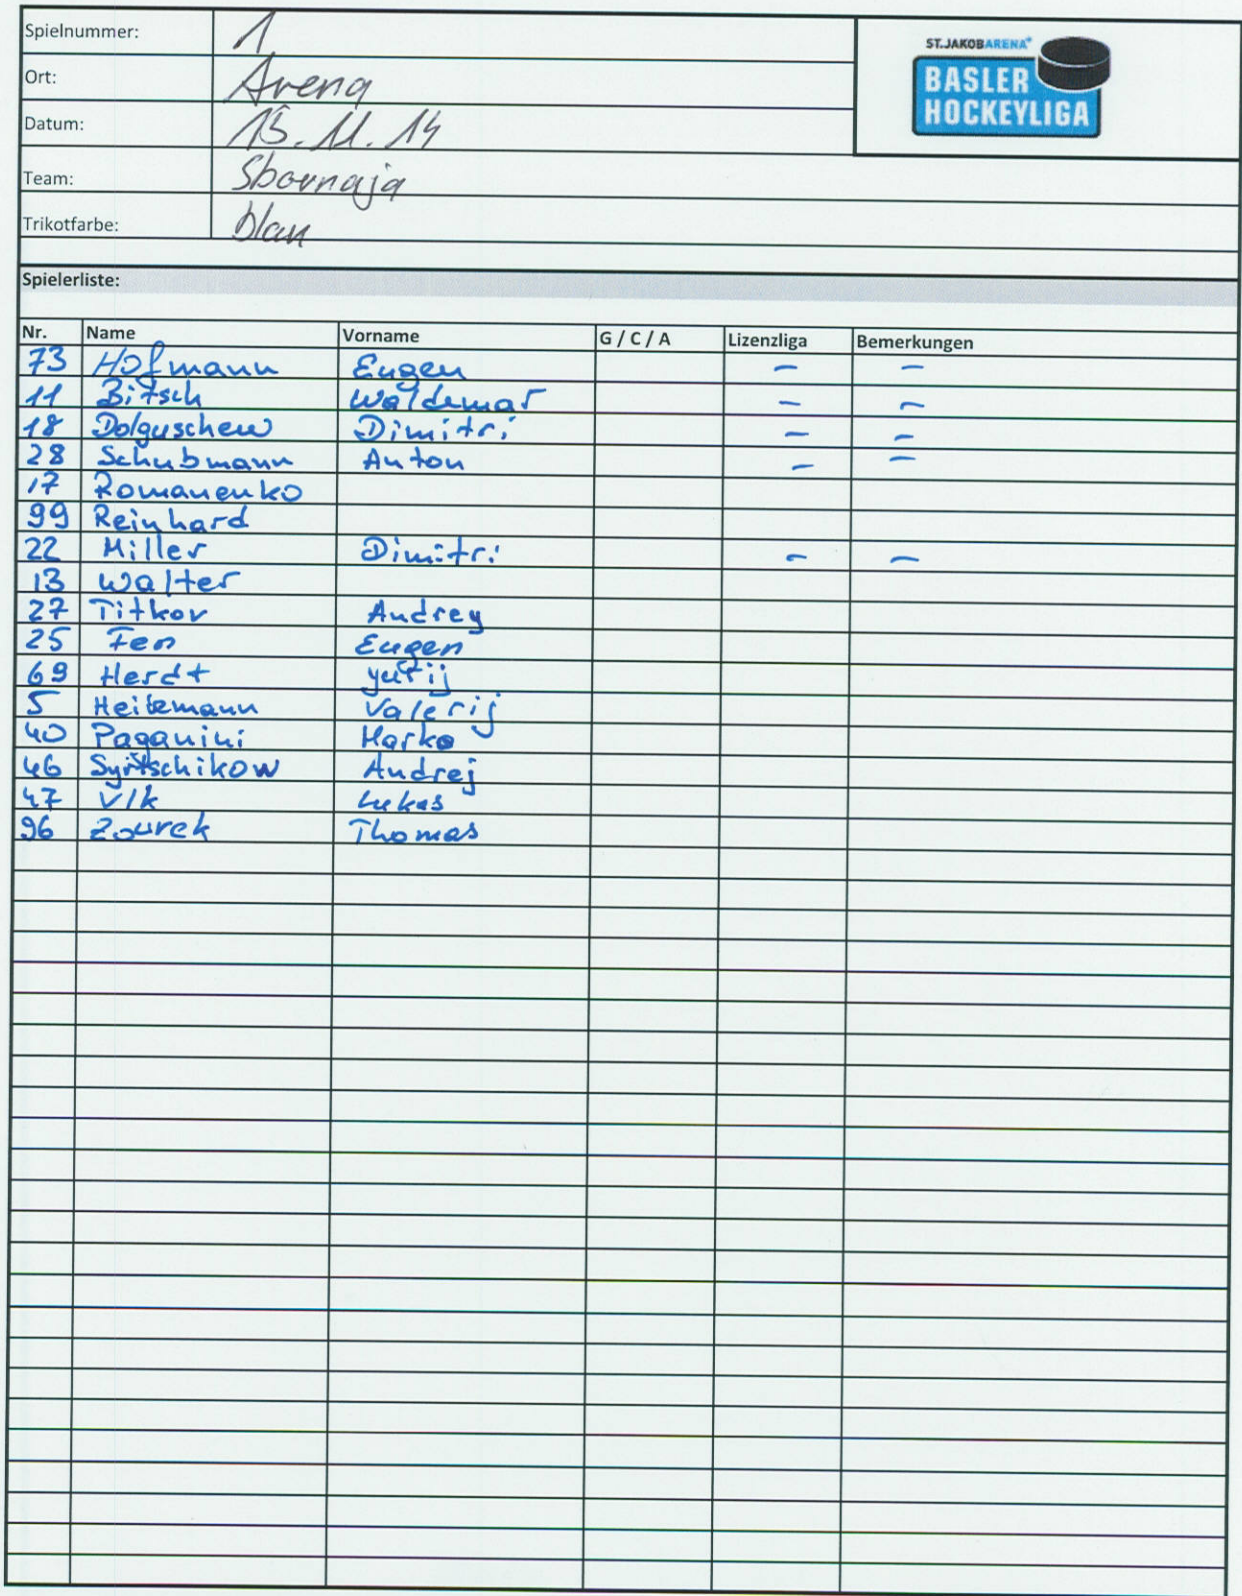 Spielnummer: 1
ST.JAKOBARENA
BASLER
HOCKEYLIGA
Ort: Arena
Datum: 15.11.14
Team: Sbornaja
Trikotfarbe: blau
Spielerliste:
Nr. Name Vorname G / C / A Lizenzliga Bemerkungen
73 Hofmann Eugen - -
11 Bitsch Waldemar - -
18 Dolguschew Dimitri - -
28 Schubmann Anton - -
17 Romanenko
99 Reinhard
22 Miller Dimitri - -
13 Walter
27 Titkov Andrey
25 Eugen
69 Herdt Yurij
5 Heitzmann Valerij
40 Paganini Marko
46 Syrtschikow Andrej
47 Vlk Lukas
96 Zourek Thomas